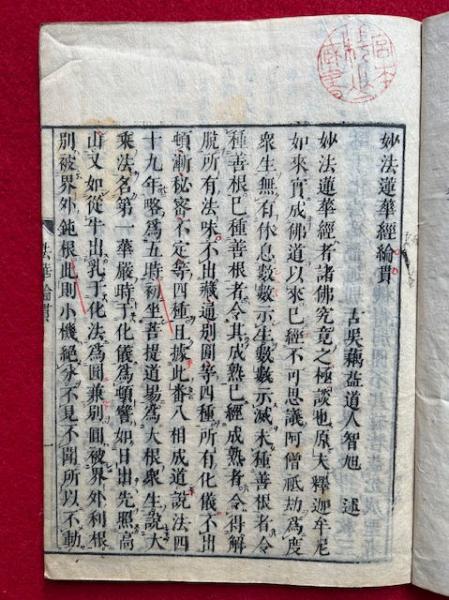 妙法蓮華經綸貫
古吳蕅益道人智旭 述
妙法蓮華經者諸佛究竟之極談也原夫釋迦牟尼
如來實成佛道以來已經不可思議阿僧祇劫爲度
衆生無有休息數數示生數數示滅未種善根者令
種善根已種善根者令其成熟已經成熟者令得解
脫所有法味不出藏通別圓等四種所有化儀不出
頓漸秘密不定等四種且據此番八相成道說法四
十九年略爲五時初坐菩提道場爲大根衆生說大
乘法名第一華嚴時于化儀爲頓譬如日出先照高
山又如從牛出乳于化法爲圓兼別圓被界外利根
別被界外鈍根此則小機絕分不見不聞所以不動
法華綸貫